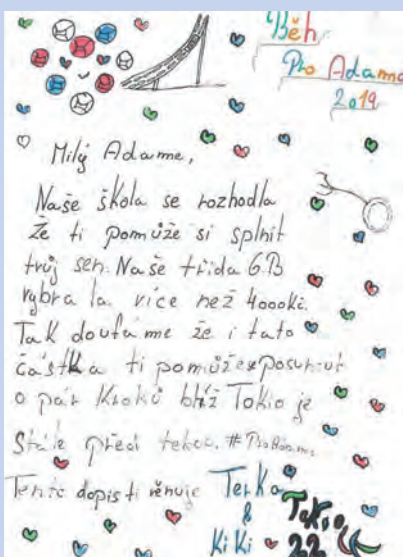 Běh
Pro Adama
2019
Milý Adame,
Naše škola se rozhodla
že ti pomůže si splnit
tvůj sen. Naše třída 6B
vybra la více než 4000kč.
Tak doufáme že i tato
částka ti pomůže posunout
o pár kroků blíž Tokio je
stále před
Tento dopis ti věnuje Terka
&
KiKi
Tokio